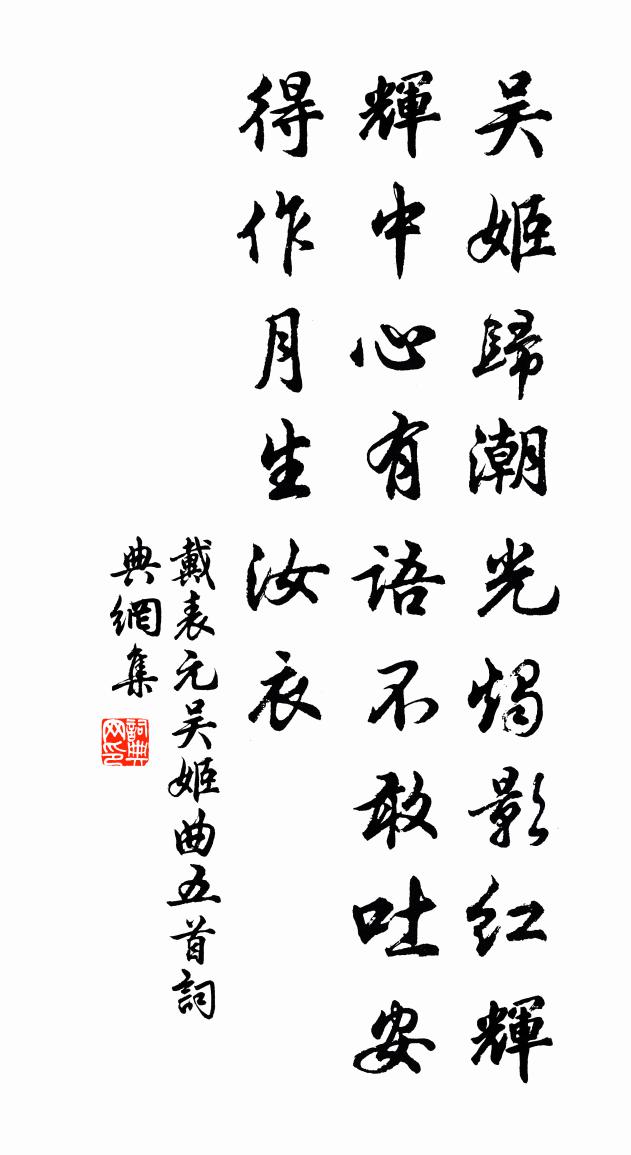 吴姬歸潮光燭影红輝
輝中心有語不敢吐安
得作月生汝衣
戴表元吴姬曲五首詞
典網集
詞典
网印